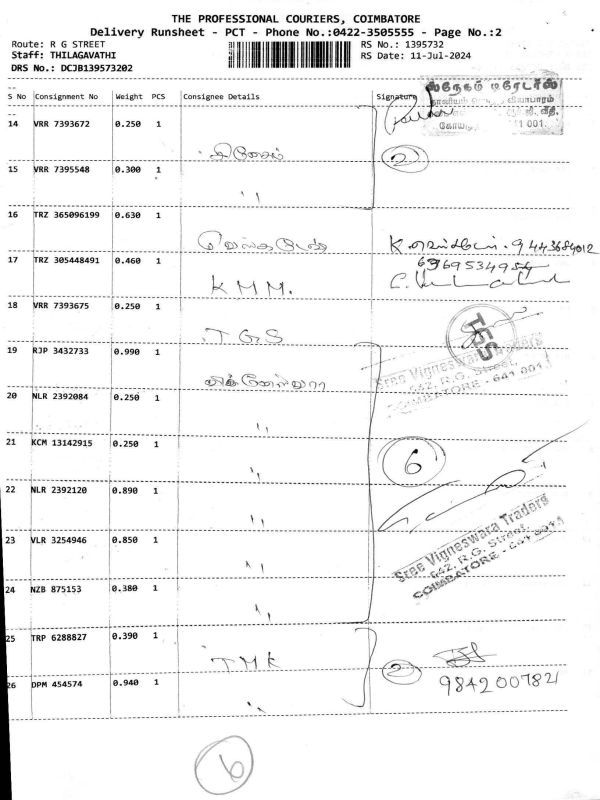 THE PROFESSIONAL COURIERS, COIMBATORE
Delivery Runsheet - PCT - Phone No.:0422-3505555 - Page No.:2
Route: R G STREET
RS No.: 1395732
Staff: THILAGAVATHI
RS Date: 11-Jul-2024
DRS No.: DCJB139573202
S No Consignment No Weight PCS Consignee Details Signature
ஸ்நேகம் டிரேடர்ஸ்
14 VRR 7393672 0.250 1
641 001.
2
15 VRR 7395548 0.300 1
〃
16 TRZ 365096199 0.630 1
9443684012
17 TRZ 305448491 0.460 1
6369534954
KMM.
18 VRR 7393675 0.250 1
T.G.S
TGS
19 RJP 3432733 0.990 1
Sree Vigneswara Traders
642, R.G. Street,
COIMBATORE - 641 001.
20 NLR 2392084 0.250 1
〃
21 KCM 13142915 0.250 1
〃
6
22 NLR 2392120 0.890 1
〃
Sree Vigneswara Traders
642, R.G. Street,
COIMBATORE - 641 001.
23 VLR 3254946 0.850 1
〃
24 NZB 875153 0.380 1
〃
25 TRP 6288827 0.390 1
TMK
2
26 DPM 454574 0.940 1
9842007821
〃
6